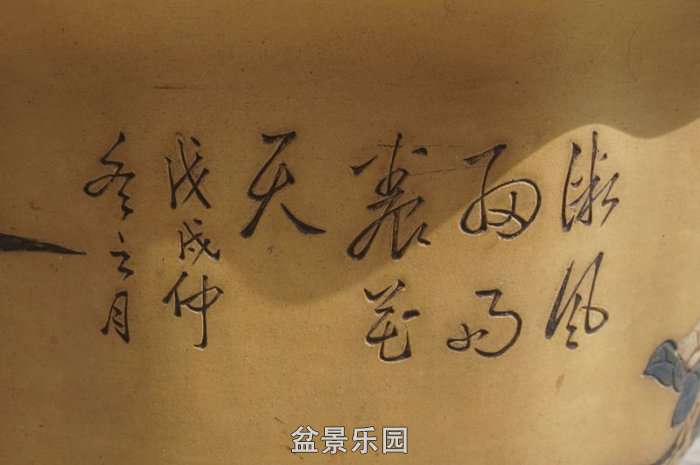 微風
細雨
養花
天
戊戌仲
冬之月
盆景乐园